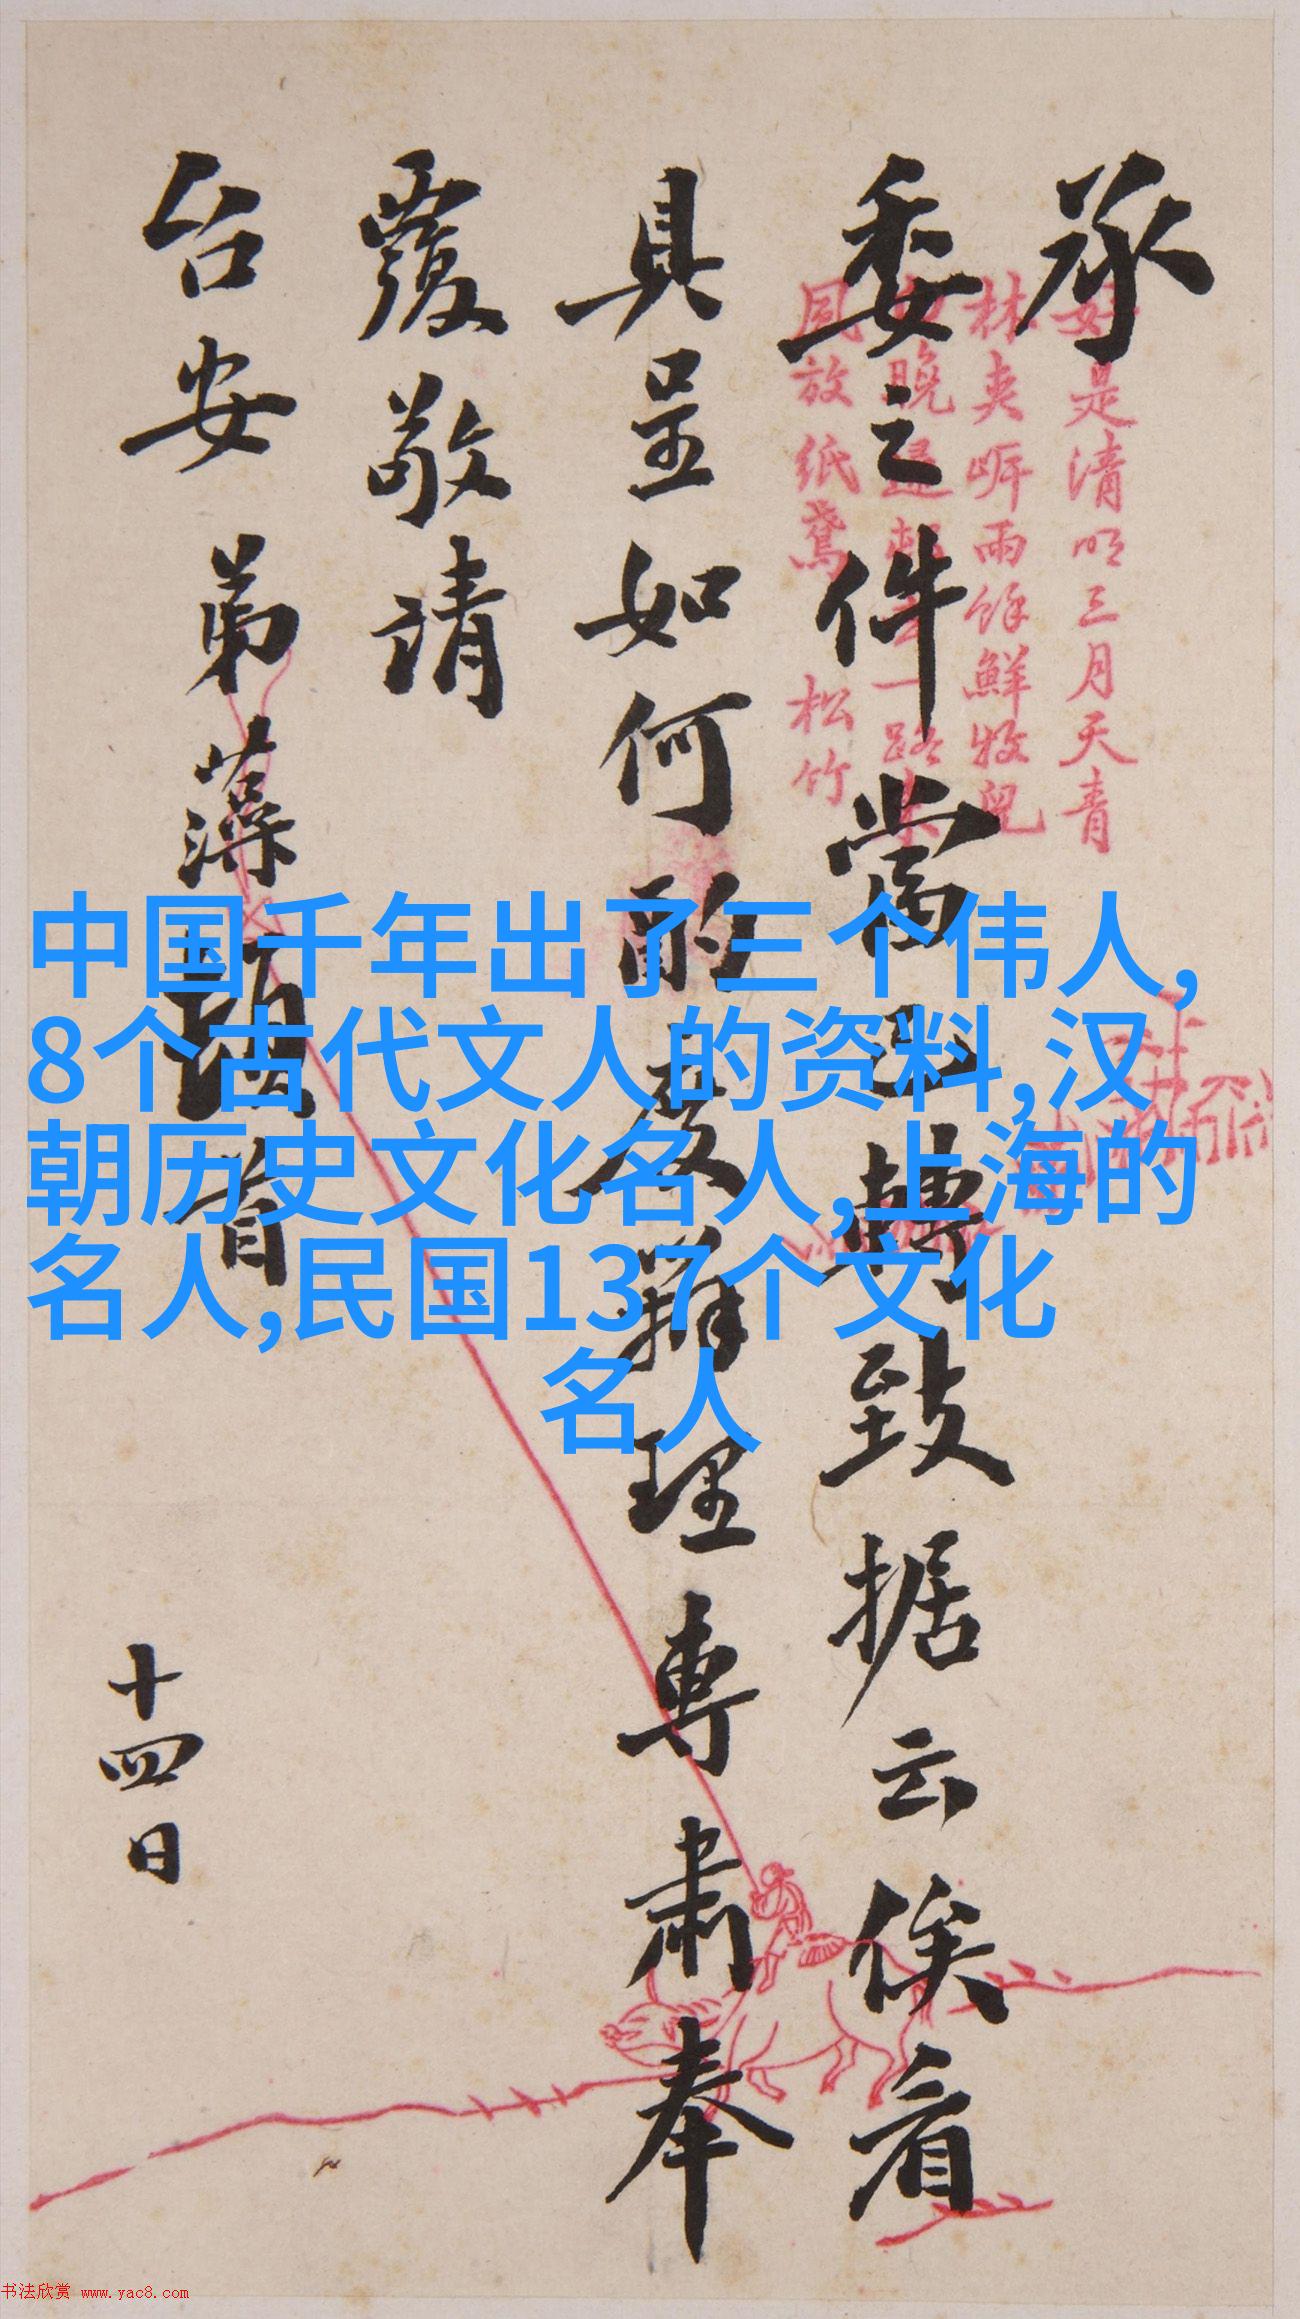 承
委之件當即轉致据云俟看
具呈如何酌度辦理專肅奉
覆敬請
台安 弟藻頓首
十四日
好是清明三月天青
林夾岍雨餘鮮牧兒
晚歸一路
風放紙鳶 松竹
中国千年出了三个伟人,
8个古代文人的资料,汉
朝历史文化名人,上海的
名人,民国137个文化
名人
书法欣赏 www.yac8.com